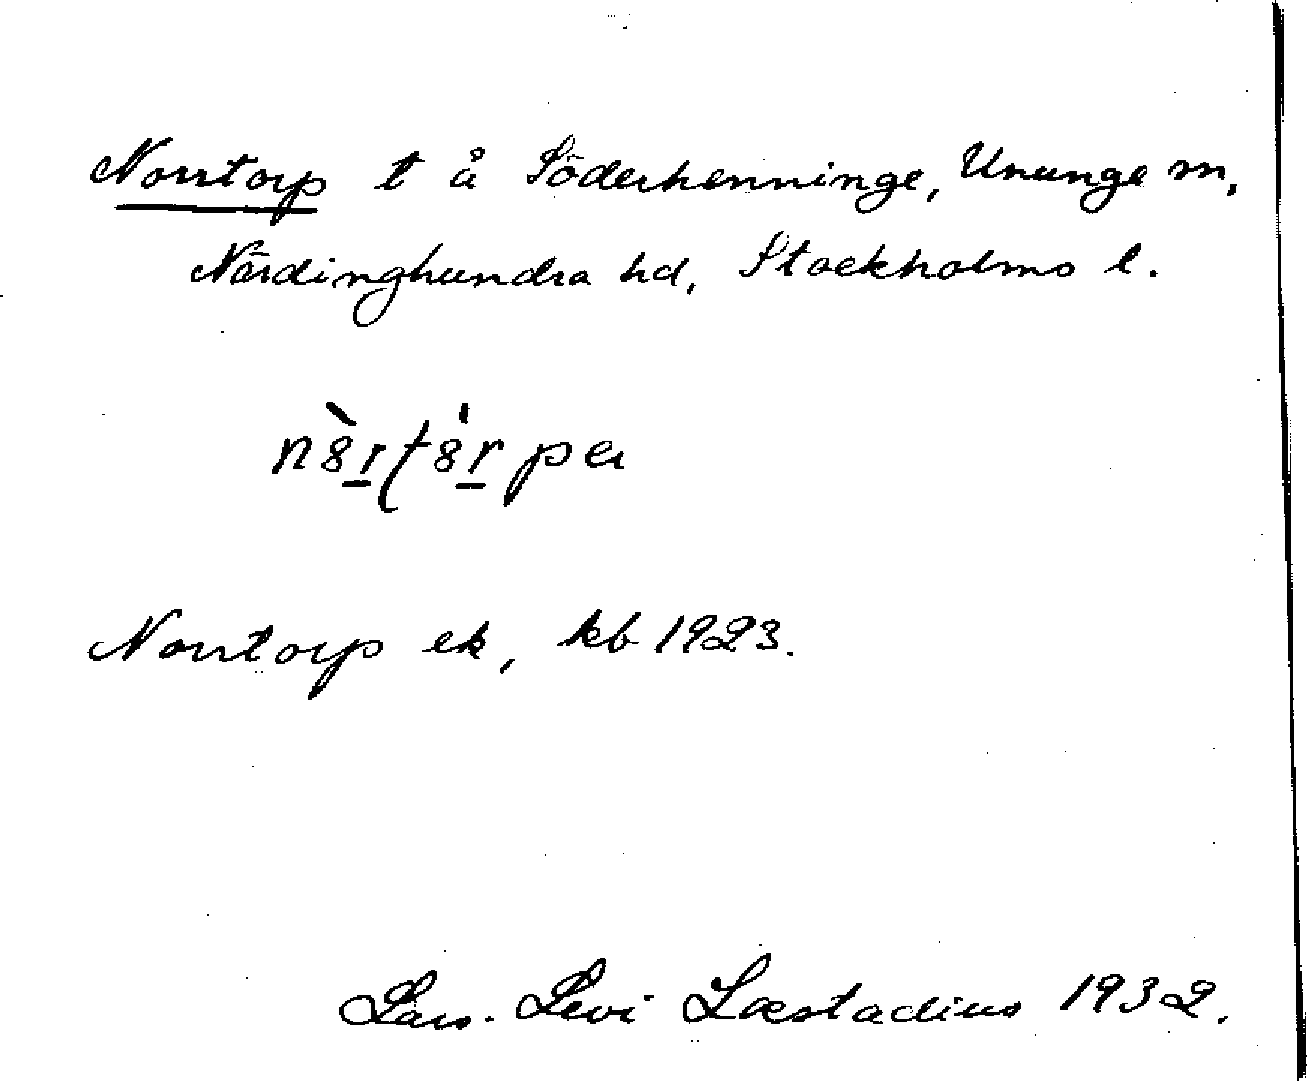 Norrtorp t å Söderhenninge, Ununge sn,
Närdinghundra hd, Stockholms l.
Norrtorp ek, kb 1923.
Lars-Levi Læstadius 1932.